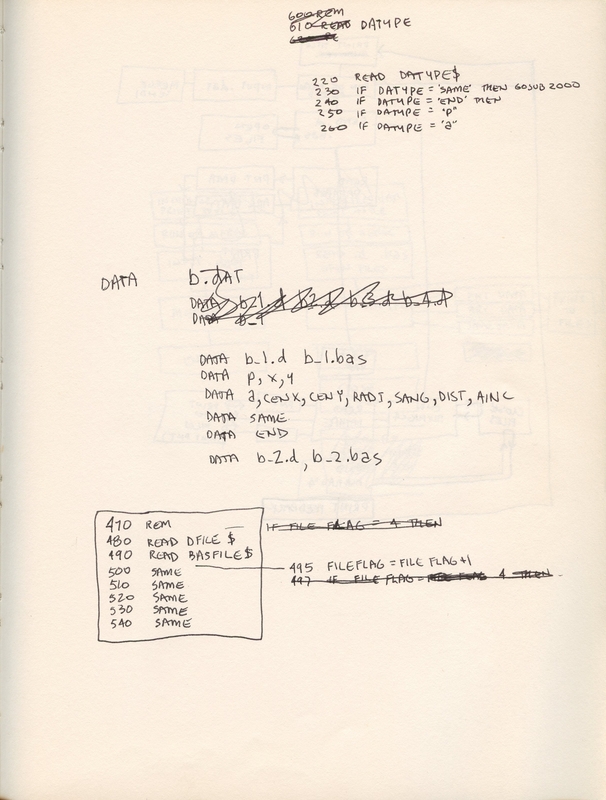 600 REM
610 READ DATYPE
220 READ DATYPE$
230 IF DATYPE = 'SAME' THEN GOSUB 2000
240 IF DATYPE = 'END' THEN
250 IF DATYPE = "P"
260 IF DATYPE = "a"
DATA b.dAT
DATA b_1.d b_2.d b_3.d b_4.d
DATA b_1
DATA b_1.d b_1.bas
DATA P, X, Y
DATA a, CENX, CENY, RADI, SANG, DIST, AINC
DATA SAME
DATA END
DATA b_2.d, b_2.bas
470 REM
IF FILE FLAG = 4 THEN
480 READ DFILE $
490 READ BASFILE$
495 FILEFLAG = FILE FLAG+1
497 IF FILE FLAG = 4 THEN
500 SAME
510 SAME
520 SAME
530 SAME
540 SAME